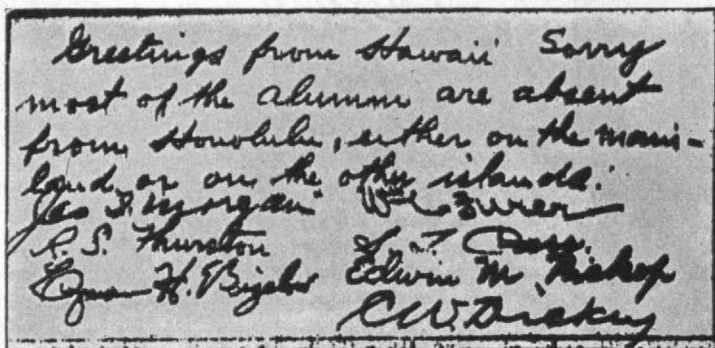 Greetings from Hawaii Sorry
most of the alumni are absent
from Honolulu, either on the main-
land or on the other islands.
Jas. F. Morgan Wm. C. Furer
R. S. Thurston
H. Bigelow Edwin M. Bishop
C. W. Dickey